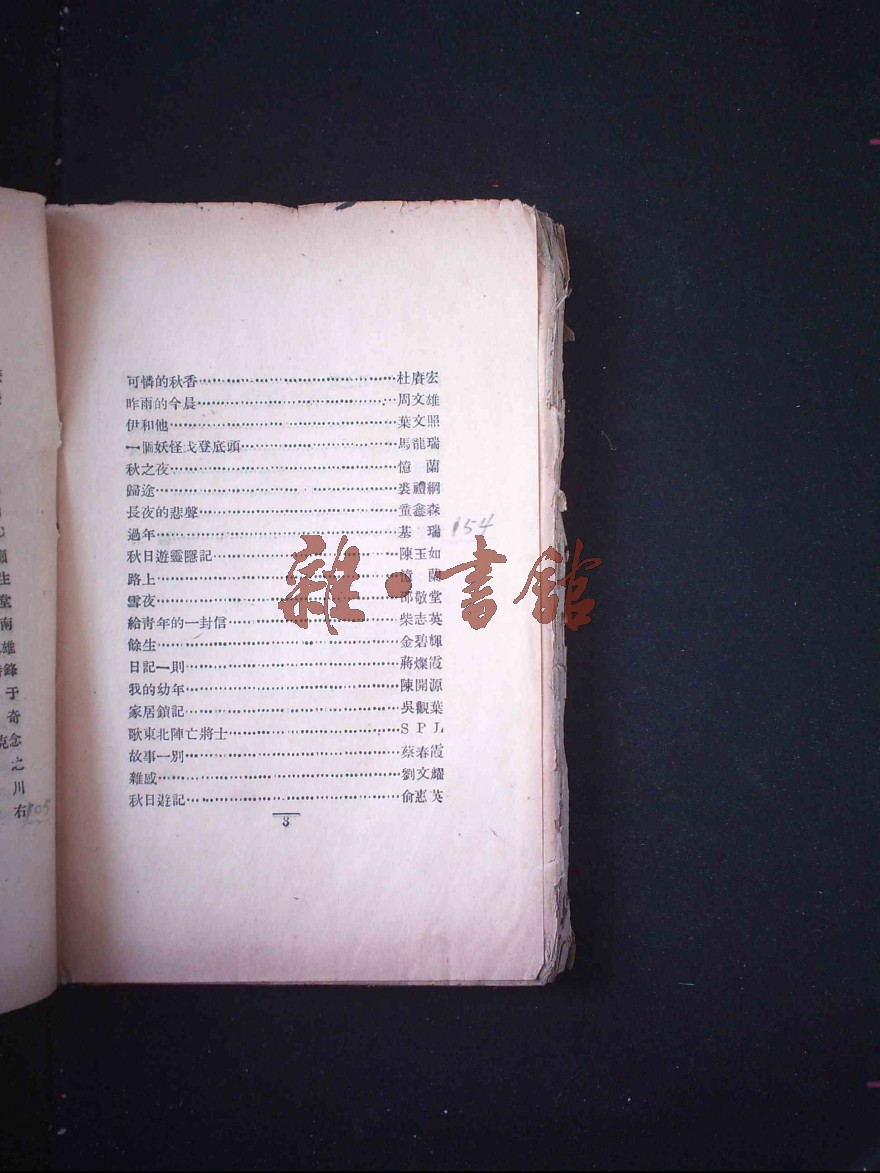 可憐的秋香 杜賡宏
昨雨的今晨 周文雄
伊和他 葉文照
一個妖怪戈登底頭 馬龍瑞
秋之夜 憶蘭
歸途 裘禮綱
長夜的悲聲 童鑫森
過年 基瑞 154
秋日遊靈隱記 陳玉如
路上 憶蘭
雪夜 邵敬堂
給靑年的一封信 柴志英
餘生 金碧輝
日記一則 蔣燦霞
我的幼年 陳開源
家居鎖記 吳觀葉
歌東北陣亡將士 SPL
故事一別 蔡春霞
雜感 劉文耀
秋日遊記 俞惠英
3
雜·書館
生
堂
南
雄
鋒
于
奇
克念
之
川
右 105